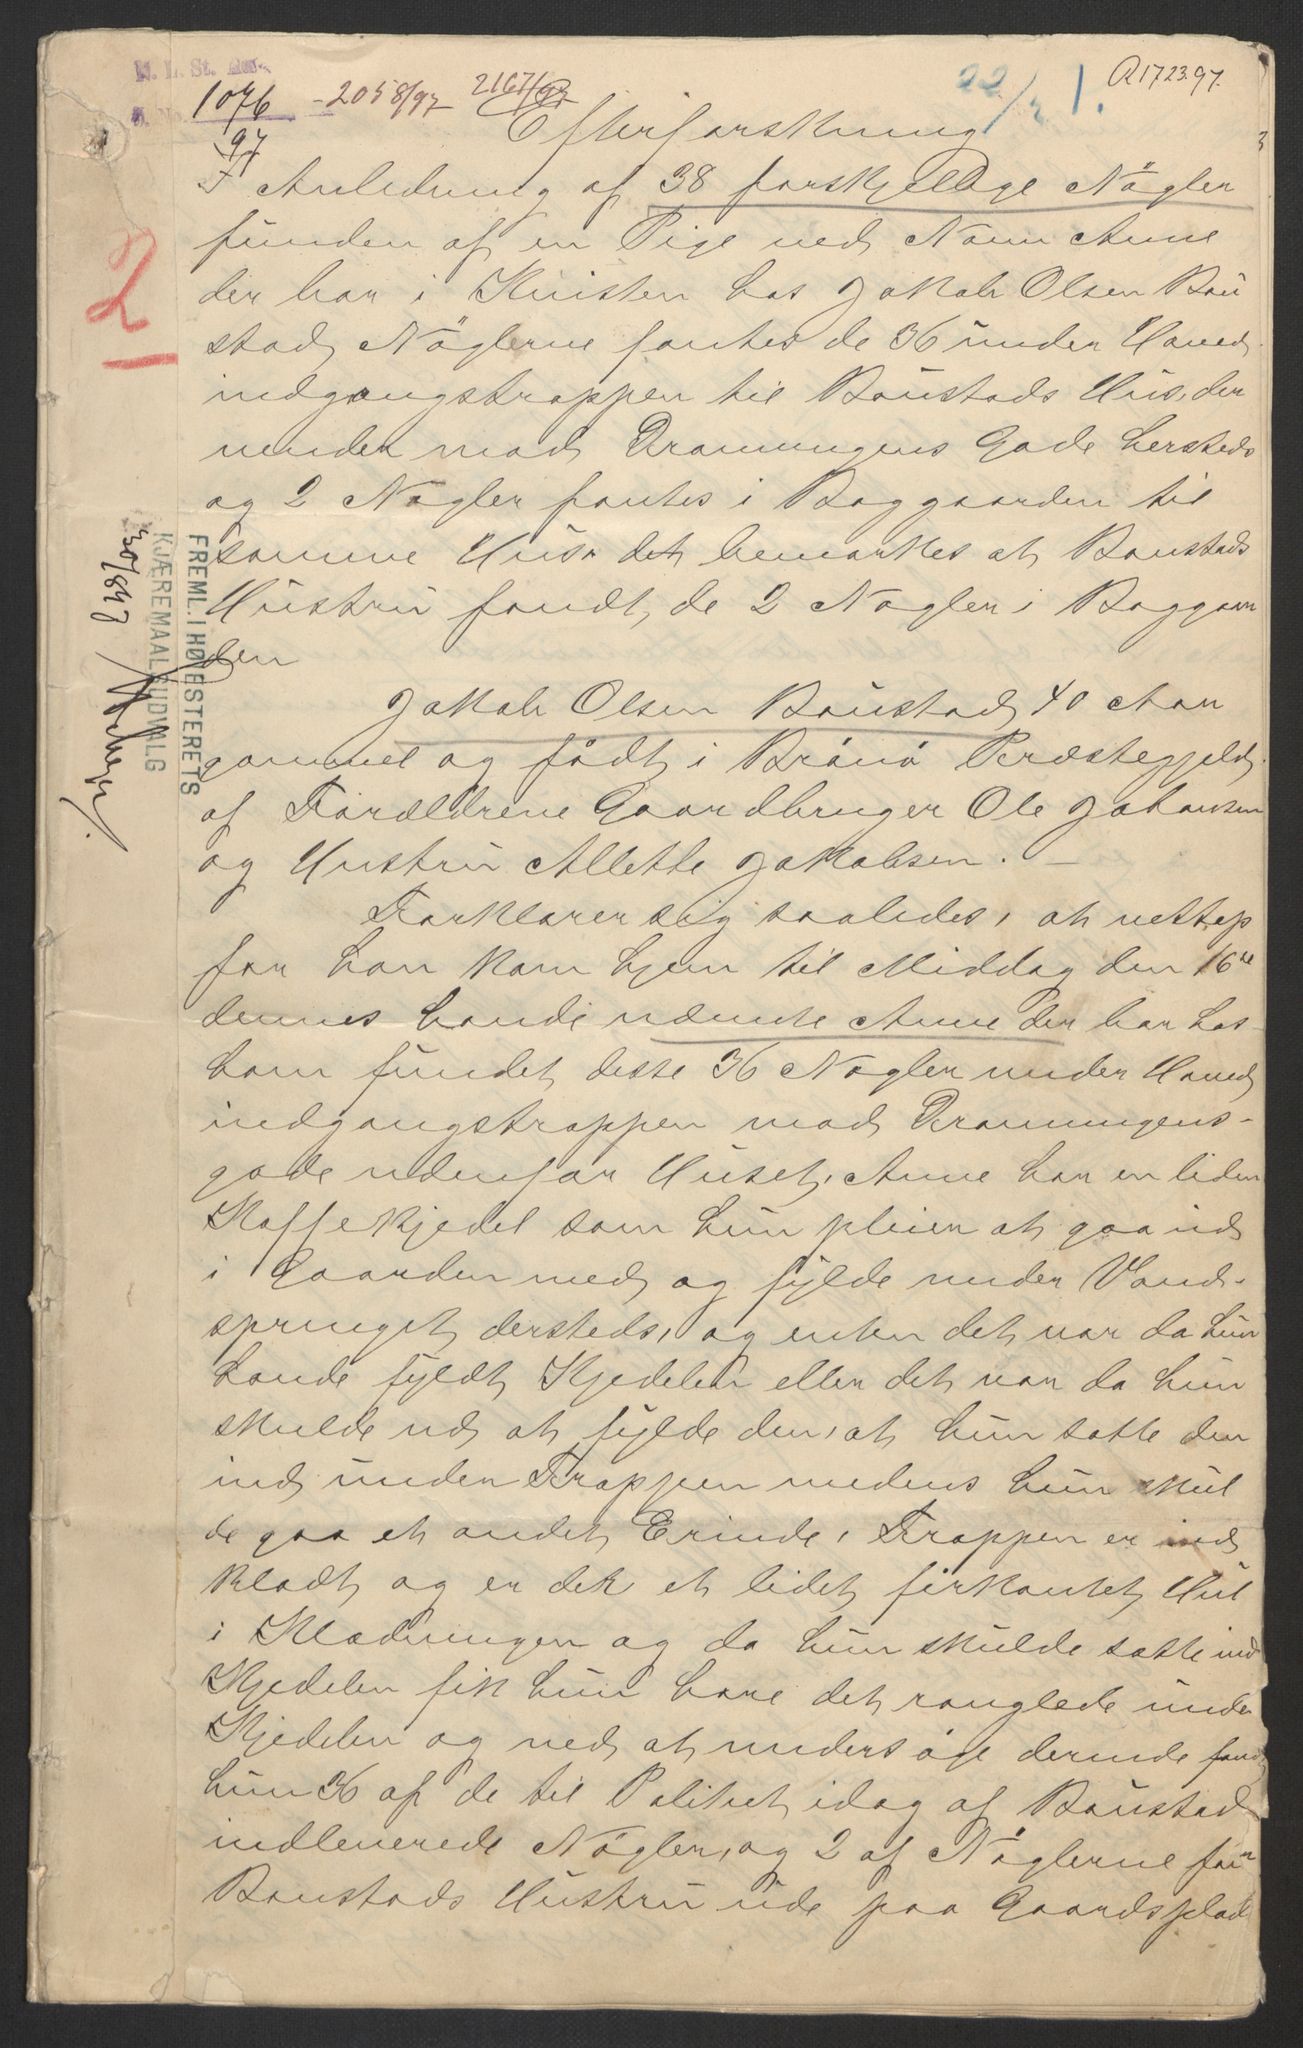 1076
97
- 2058/97
2167/97
22/4 1.
R 1723.97.
2
Efterforskning
I Anledning af 38 forskjellige Nøgler
funden af en Pige ved Navn Anne
der bor i Kvisten hos Jakob Olsen Bøu
stad, Nøglerne fantes de 36 under Hoved
indgangstrappen til Boustads Hus, der
vender mod Dronningens Gade hersteds
og 2 Nøgler fantes i Baggaarden til
samme Hus. det bemærkes at Boustads
Hustru fandt de 2 Nøgler i Baggaar
den
Jakob Olsen Boustad, 40 Aar
gammel og født i Brønø Præstegjeld,
af Forældrene Gaardbruger Ole Johansen
og Hustru Allette Jakobsen. —
Forklarer sig saaledes, at netop
før han kom hjem til Middag den 16de
dennes havde nævnte Anne der bor hos
ham fundet disse 36 Nøgler under Hoved
indgangstrappen mod Dronningens-
gade udenfor Huset, Anne har en liden
Kaffekjedel som hun pleier at gaa ud
i Gaarden med og fylde under Vand-
springet dersteds, og enten det var da hun
havde fyldt Kjedelen eller det var da hun
skulde ud at fylde den, at hun satte den
ind under Trappen medens hun skul
de gaa et andet Erinde, Trappen er ind
klædt og er der et lidet firkantet Hul
i Klædningen og da hun skulde sætte ind
Kjedelen fik hun høre det ranglede under
Kjedelen og ved at undersøge derinde fandt
hun 36 af de til Politiet idag af Boustad
indleverede Nøgler, og 2 af Nøglerne fan
Boustads Hustru ude paa Gaardsplad
FREML. I HØIESTERETS
KJÆREMAALSUDVALG
30/8 97